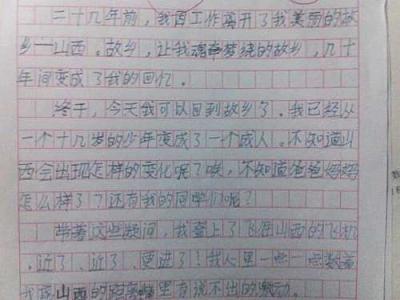 二十几年前，我因工作离开了我美丽的故
乡一山西。故乡，让我魂牵梦绕的故乡，几十
年间变成了我的回忆。
终于，今天我可以回到故乡了。我已经从
一个十几岁的少年变成了一个成人。不知道山
西会出现怎样的变化呢？唉，不知道爸爸妈妈
怎么样了？还有我的同学们呢？
带着这些疑问，我登上了飞往山西的飞机
。近了、近了、更进了！我心里一些一些数着
我离山西的距离，心里有说不出的激动。